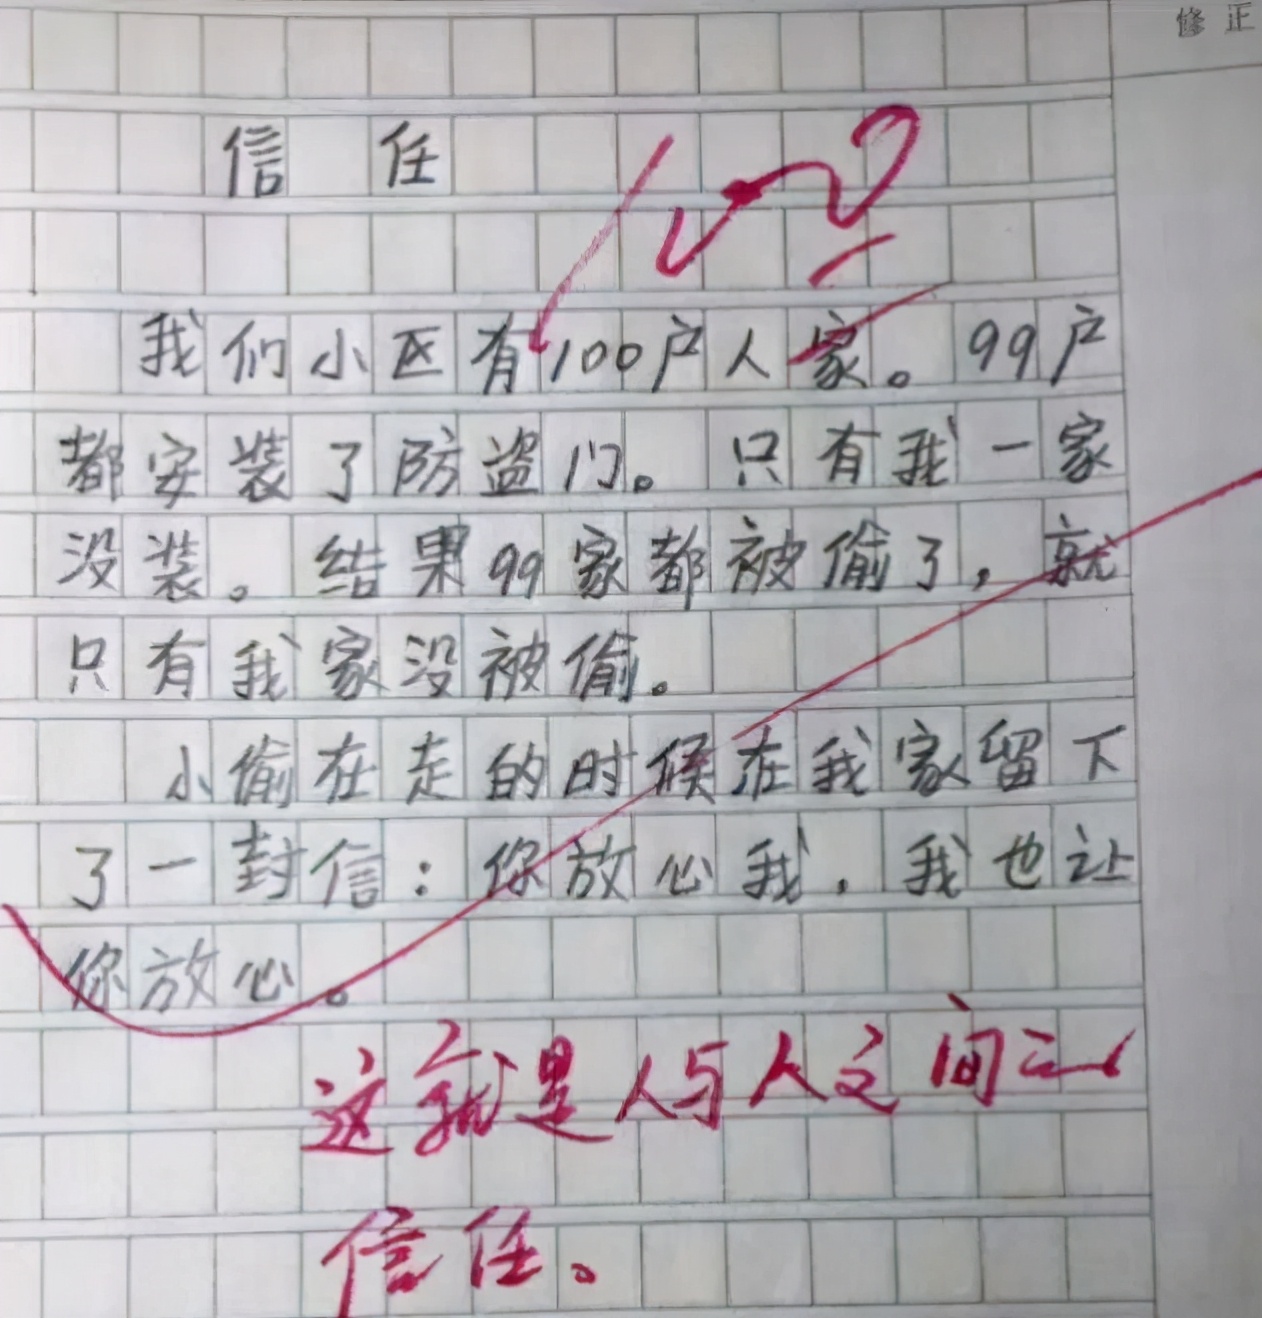 修正
信任
我们小区有100户人家。99户
都安装了防盗门。只有我一家
没装。结果99家都被偷了，就
只有我家没被偷。
小偷在走的时候在我家留下
了一封信：你放心我，我也让
你放心。
这就是人与人之间
信任。